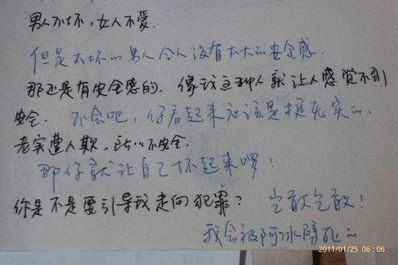 男人不坏，女人不爱。
但是太坏的男人令人没有太大的安全感。
那还是有安全感的。像我这种人就让人感觉不到
安全。 不会吧，你看起来应该是挺老实的。
老实遭人欺，所以不安全。
那你就让自己坏起来啰！
你是不是要引导我走向犯罪？ 岂敢岂敢！
我会被阿冰降死的
2011/01/25 06:06